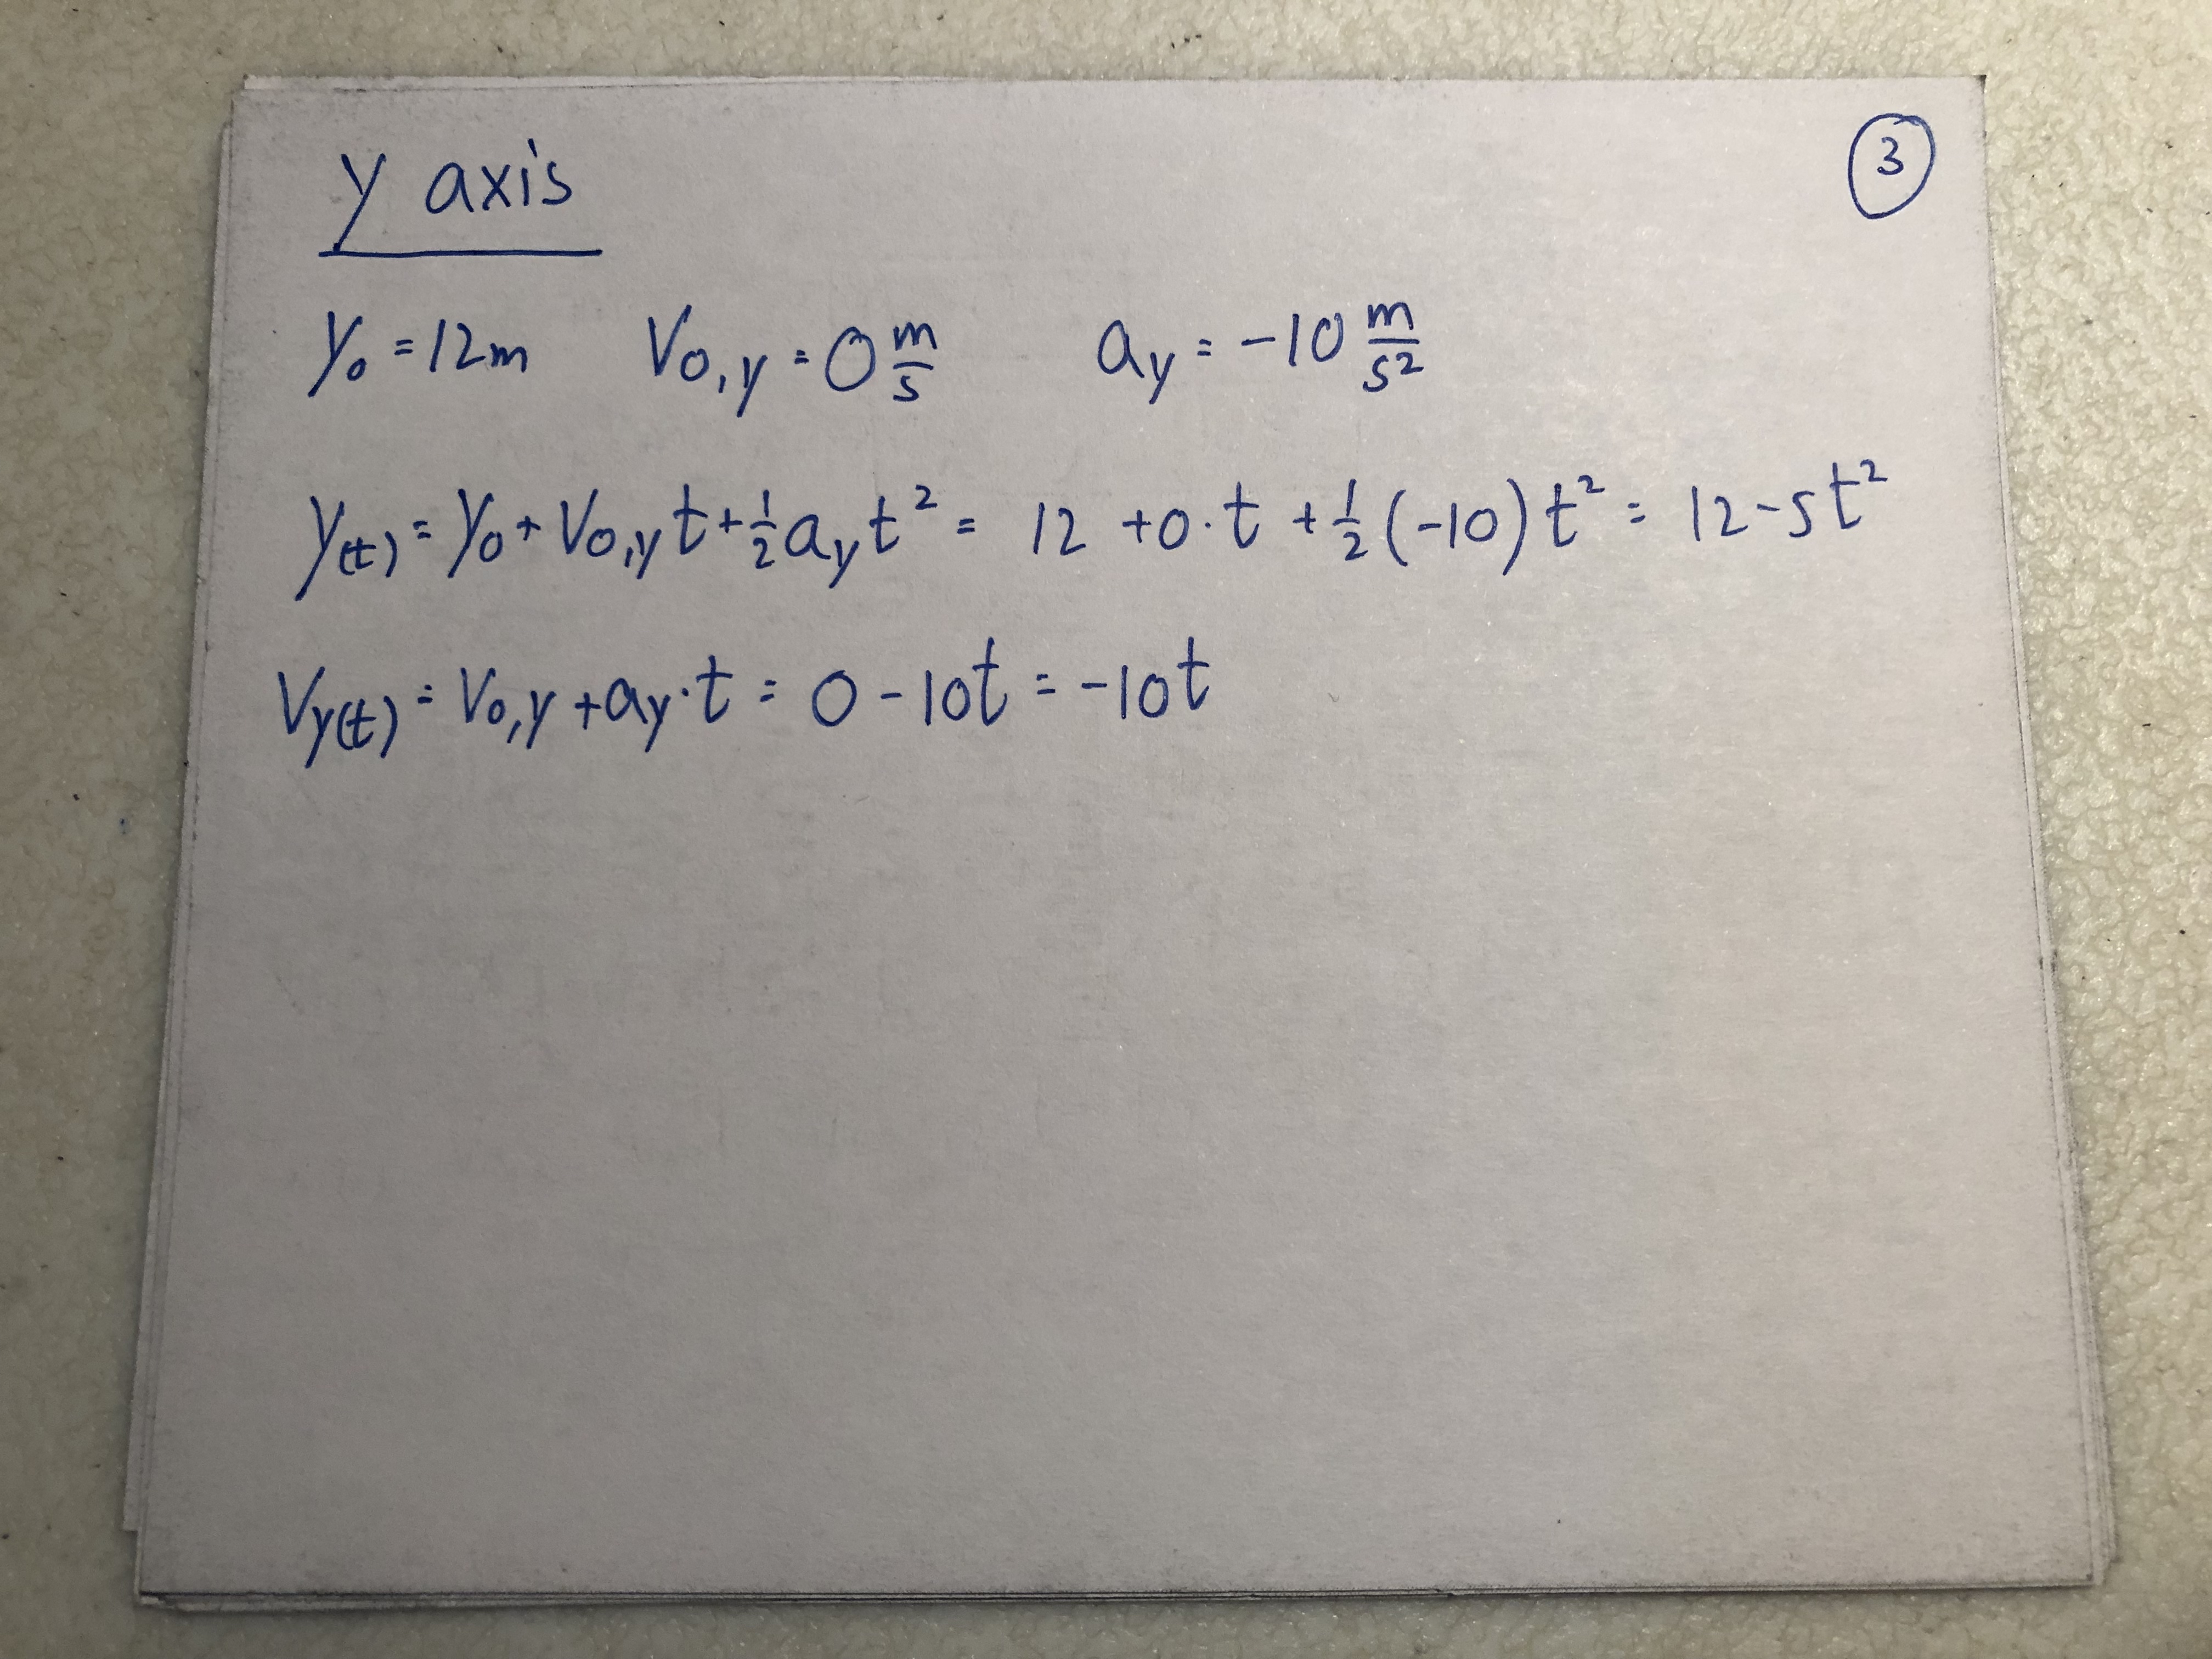 y axis ③
y₀ = 12m V₀,y = 0 m/s a_y = -10 m/s²
y(t) = y₀ + V₀,y t + ½ a_y t² = 12 + 0·t + ½ (-10) t² = 12 - 5t²
V_y(t) = V₀,y + a_y·t = 0 - 10t = -10t